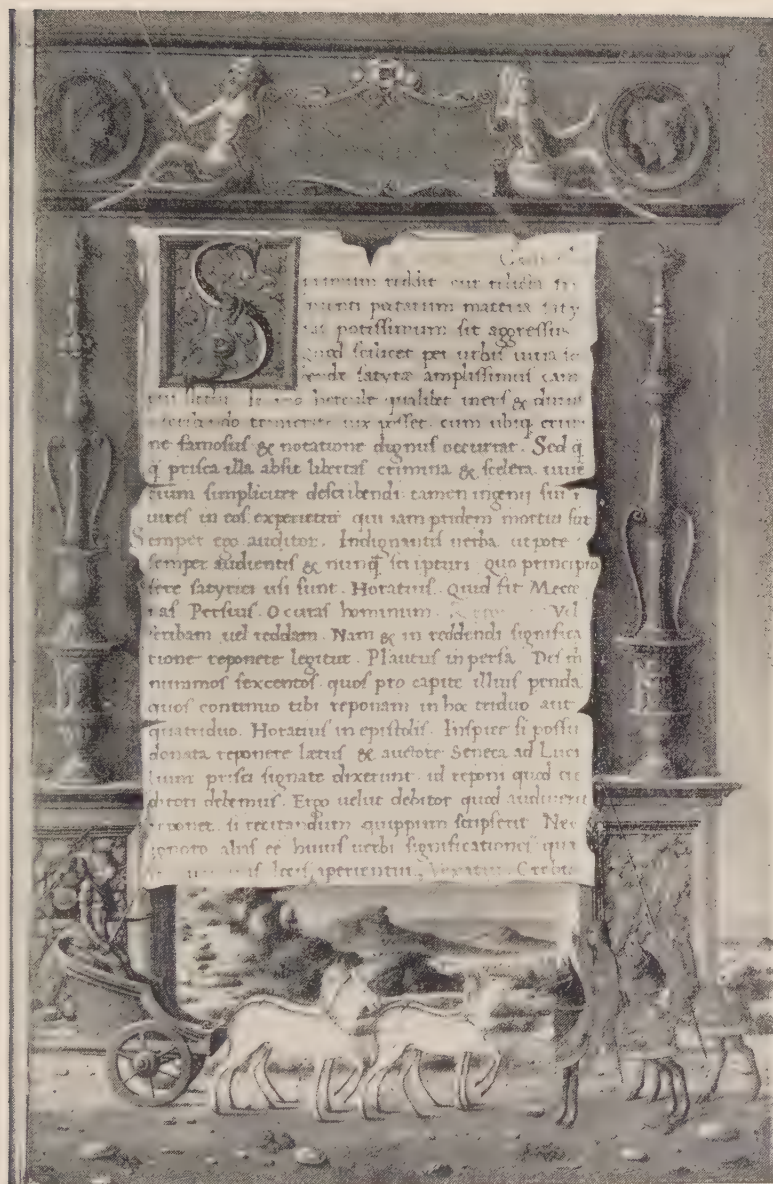 6
S
reddit cur
putarim
potissimum sit aggressus
Quod scilicet per urbis uitia
satyræ amplissimus cam
hercule quilibet iners &
cum ubiq
ne famosus & notatione dignus occurrat. Sed q̃
q̃ prisca illa absit libertas crimina & scelera uiue
tium simpliciter describendi. tamen ingenij sui
uires in eos experietur qui iam pridem mortui sūt
Semper ego auditor. Indignantis uerba utpote
semper audientis & nunq̃ scripturi. quo principio
fere satyrici usi sunt. Horatius. Quid fit Mece
nas Persius. O curas hominum. Vel
scribam uel reddam. Nam & in reddendi significa
tione reponere legitur. Plautus in persa.
nummos sexcentos quos pro capite illius penda
quos continuo tibi reponam in hoc triduo aut
quatriduo. Horatius in epistolis. Inspice si possū
donata reponere lætus & auctore Seneca ad Luci
lium prisci signate dixerunt. id reponi quod cre
ditori debemus. Ergo uelut debitor quod audiuerit
si recitandum quippium scripserit Nec
ignoro alias eē huius uerbi significationes
aperientur. Vexatus.